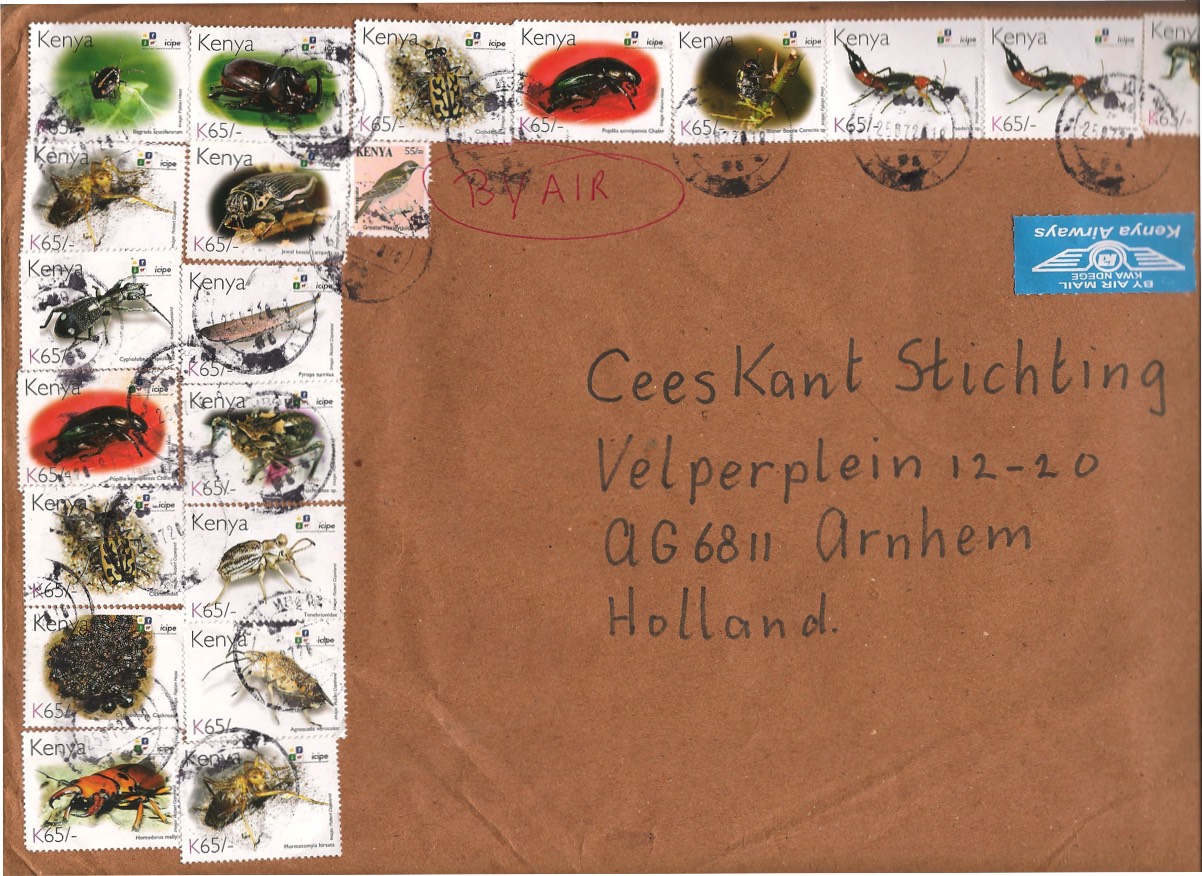 Kenya icipe
K65/-
Bagrada spuellarorum
Kenya
K65/-
Kenya icipe
K65/-
Cicindelidae
Kenya icipe
K65/-
Popillia sonnipensis Chafer
Kenya icipe
K65/-
Kenya icipe
K65/-
Kenya icipe
K65/-
Kenya
K65/-
Kenya
K65/-
Kenya
K65/-
KENYA 55/=
Greater Honeyguide
BY AIR
BY AIR MAIL
KWA NDEGE
Kenya Airways
Kenya icipe
K65/-
Kenya icipe
K65/-
Pyrops
Kenya icipe
K65/-
Kenya icipe
K65/-
Kenya icipe
K65/-
Cicindelidae
Kenya icipe
K65/-
Tenebrionidae
Kenya icipe
K65/-
Kenya icipe
K65/-
Agnoscelis versicolor
Kenya icipe
K65/-
Homoderus mellyi
Kenya icipe
K65/-
Mormotomyia hirsuta
Cees Kant Stichting
Velperplein 12-20
AG 6811 Arnhem
Holland.